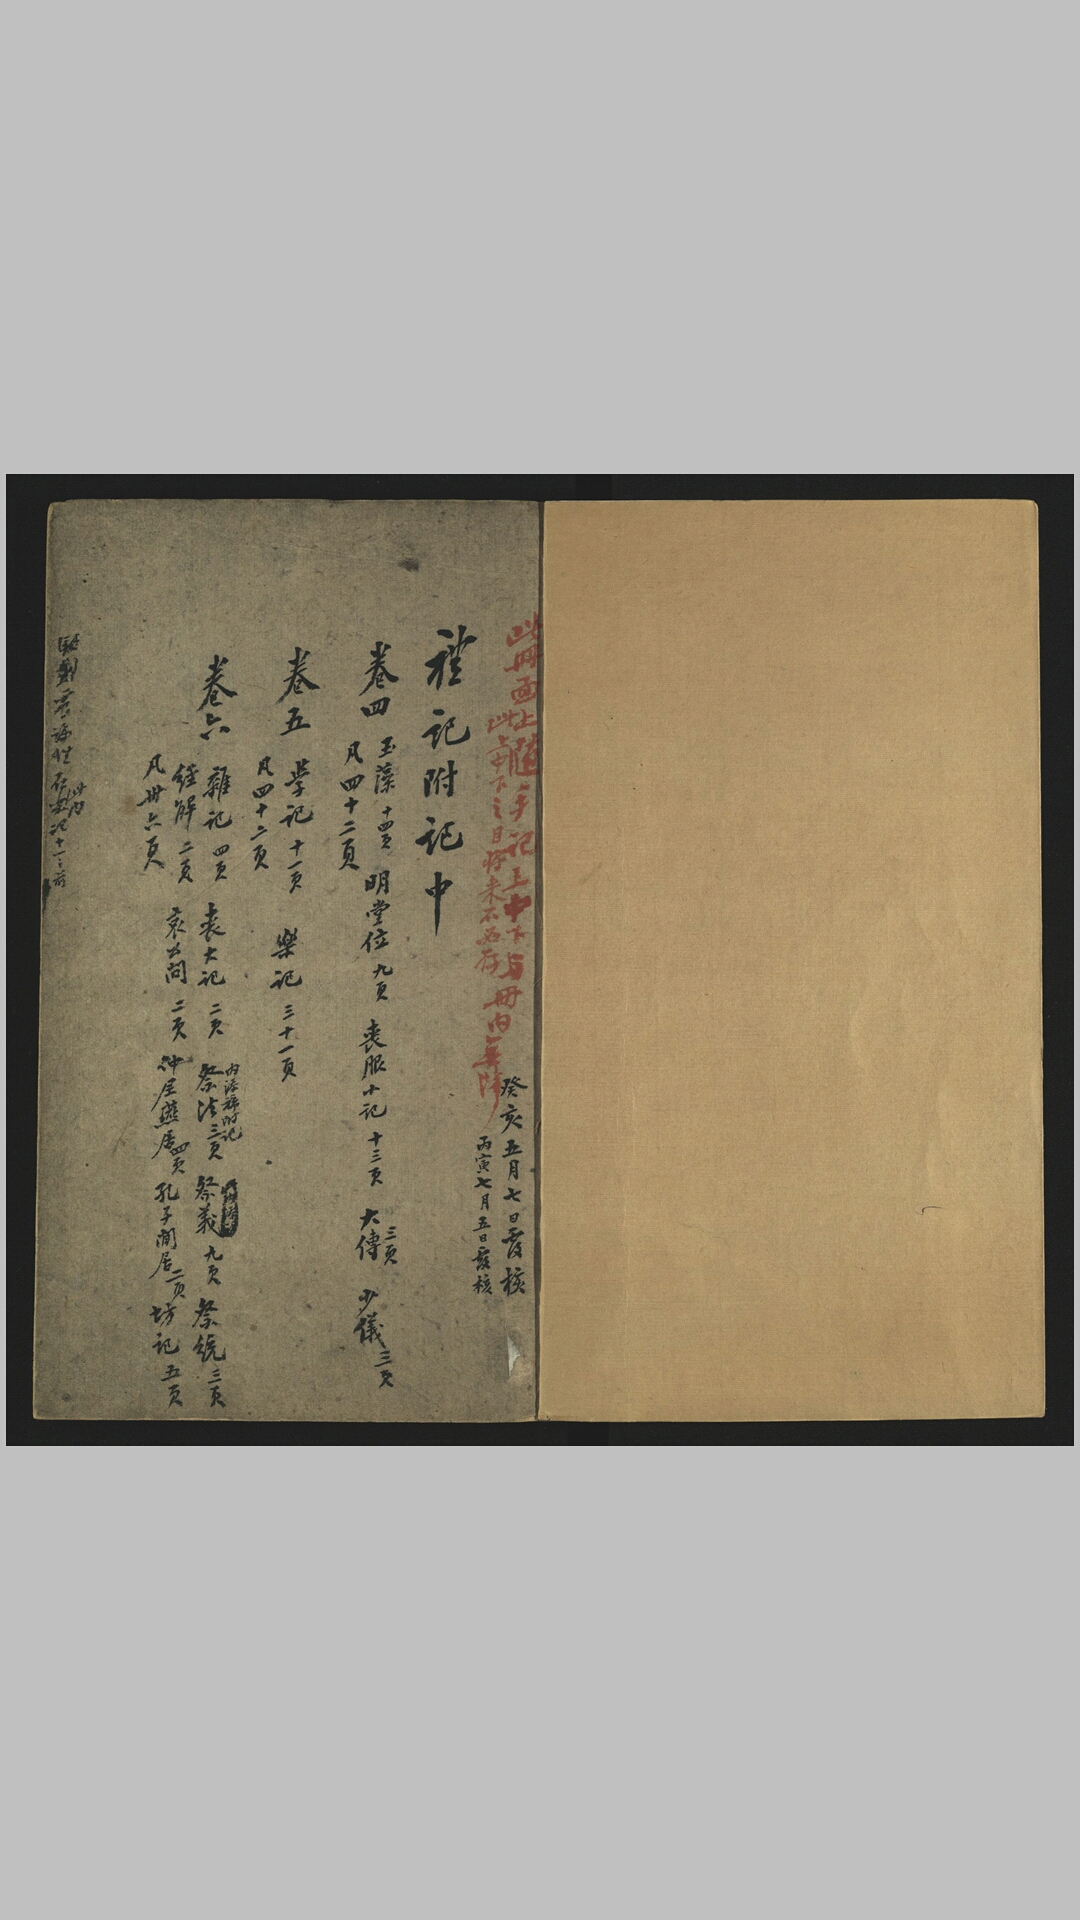 此冊面上隨手記上中下与冊內無涉
此上中下之目将来不必存
癸亥五月七日覆核
丙寅七月五日覆核
禮記附記中
卷四 玉藻十四頁 明堂位九頁 喪服小記十三頁 大傳三頁 少儀三頁
凡四十二頁
卷五 學記十一頁 樂記三十一頁
凡四十二頁
內添禘附記
卷六 雜記四頁 喪大記二頁 祭法三頁 祭義九頁 祭統三頁
經解二頁 哀公問二頁 仲尼燕居四頁 孔子閒居二頁 坊記五頁
凡卅六頁